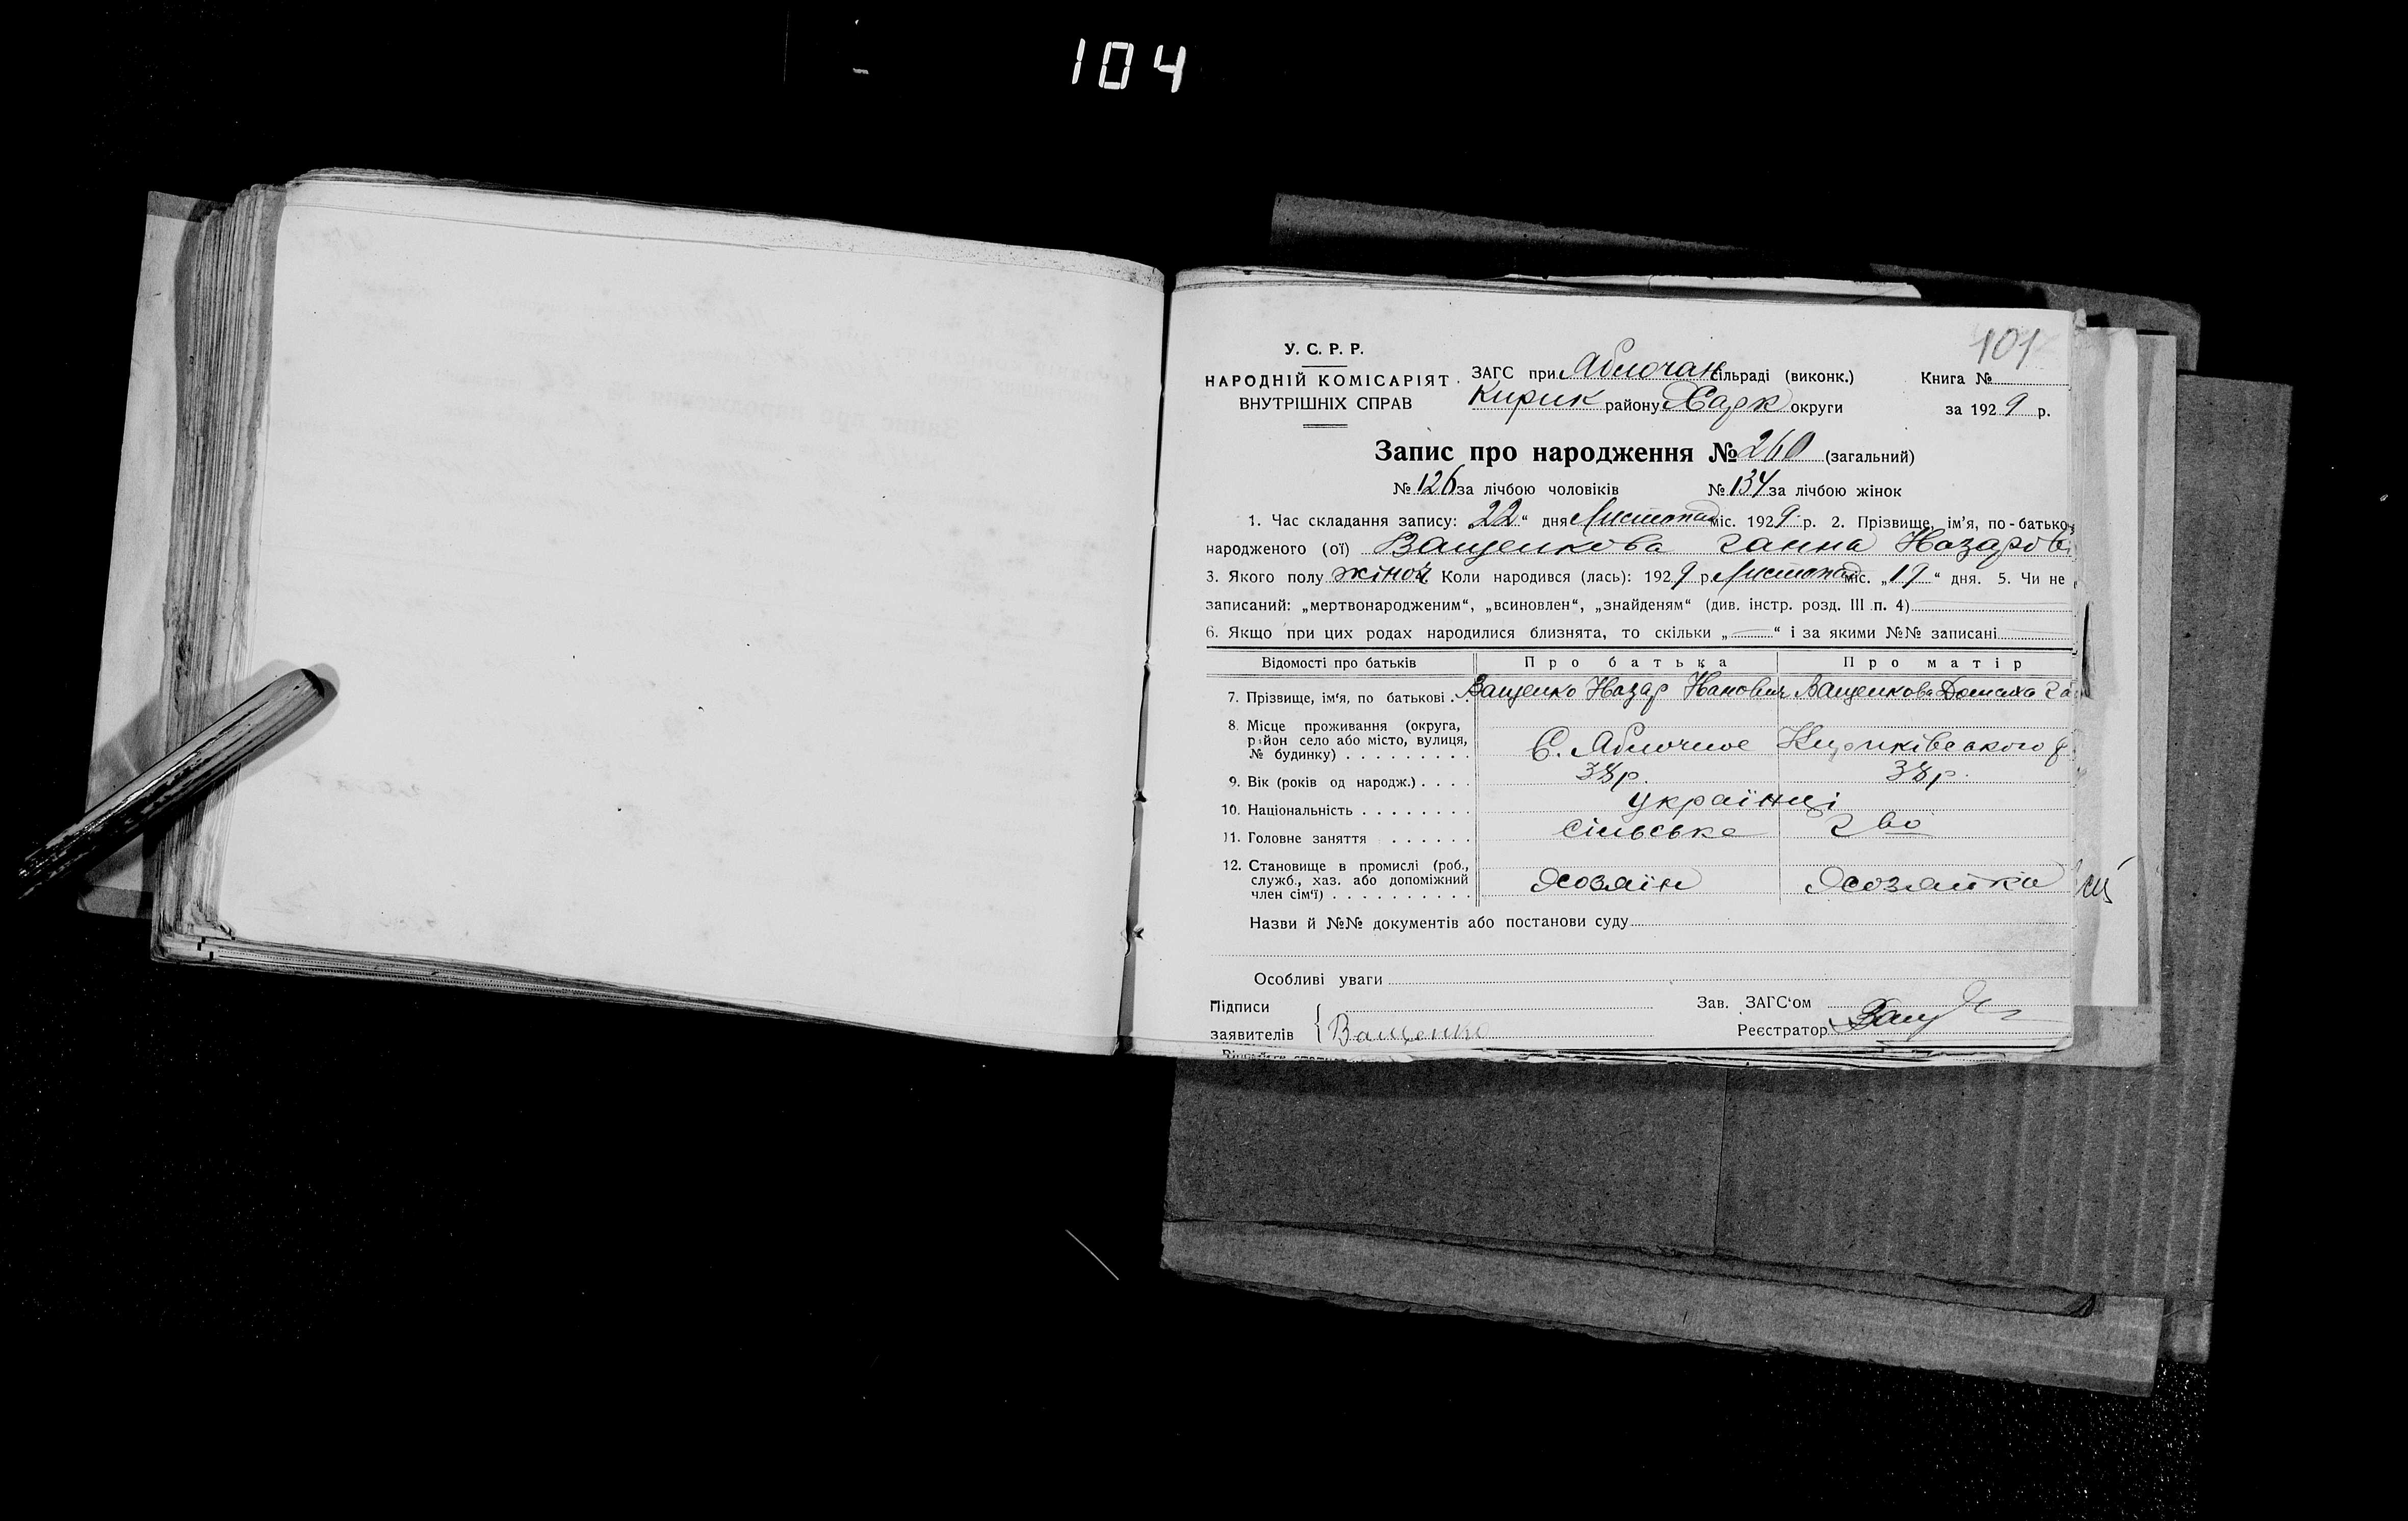 104
101
У. С. Р. Р.
НАРОДНІЙ КОМІСАРІЯТ
ВНУТРІШНІХ СПРАВ
ЗАГС при Яблочан сільраді (виконк.) Книга №
Кирик району Харк округи за 1929 р.
Запис про народження № 260 (загальний)
№ 126 за лічбою чоловіків № 134 за лічбою жінок
1. Час складання запису: 22 “ дня Листопад міс. 1929 р. 2. Прізвище, ім’я, по-батьков
народженого (ої) Ващенкова Ганна Назарові
3. Якого полу жіноч Коли народився (лась): 1929 р. Листопад міс. „19“ дня. 5. Чи не
записаний: „мертвонародженим“, „всиновлен“, „знайденям“ (див. інстр. розд. III п. 4)
6. Якщо при цих родах народилися близнята, то скільки „—“ і за якими №№ записані
Відомості про батьків Про батька Про матір
7. Прізвище, ім‘я, по батькові . . Ващенко Назар Ващенкова Домаха Га
8. Місце проживання (округа,
район село або місто, вулиця,
№ будинку) . . . . . . . . . С. Яблочное
9. Вік (років од народж.) . . . . 38р. 38р.
10. Національність . . . . . . . . українці
11. Головне заняття . . . . . . сільське г-во
12. Становище в промислі (роб.,
служб., хаз. або допоміжний
член сім‘ї) . . . . . . . . . . Хозяїн Хозяйка
Назви й №№ документів або постанови суду
Особливі уваги
Підписи Зав. ЗАГС‘ом
заявителів { Ващенко Реєстратор